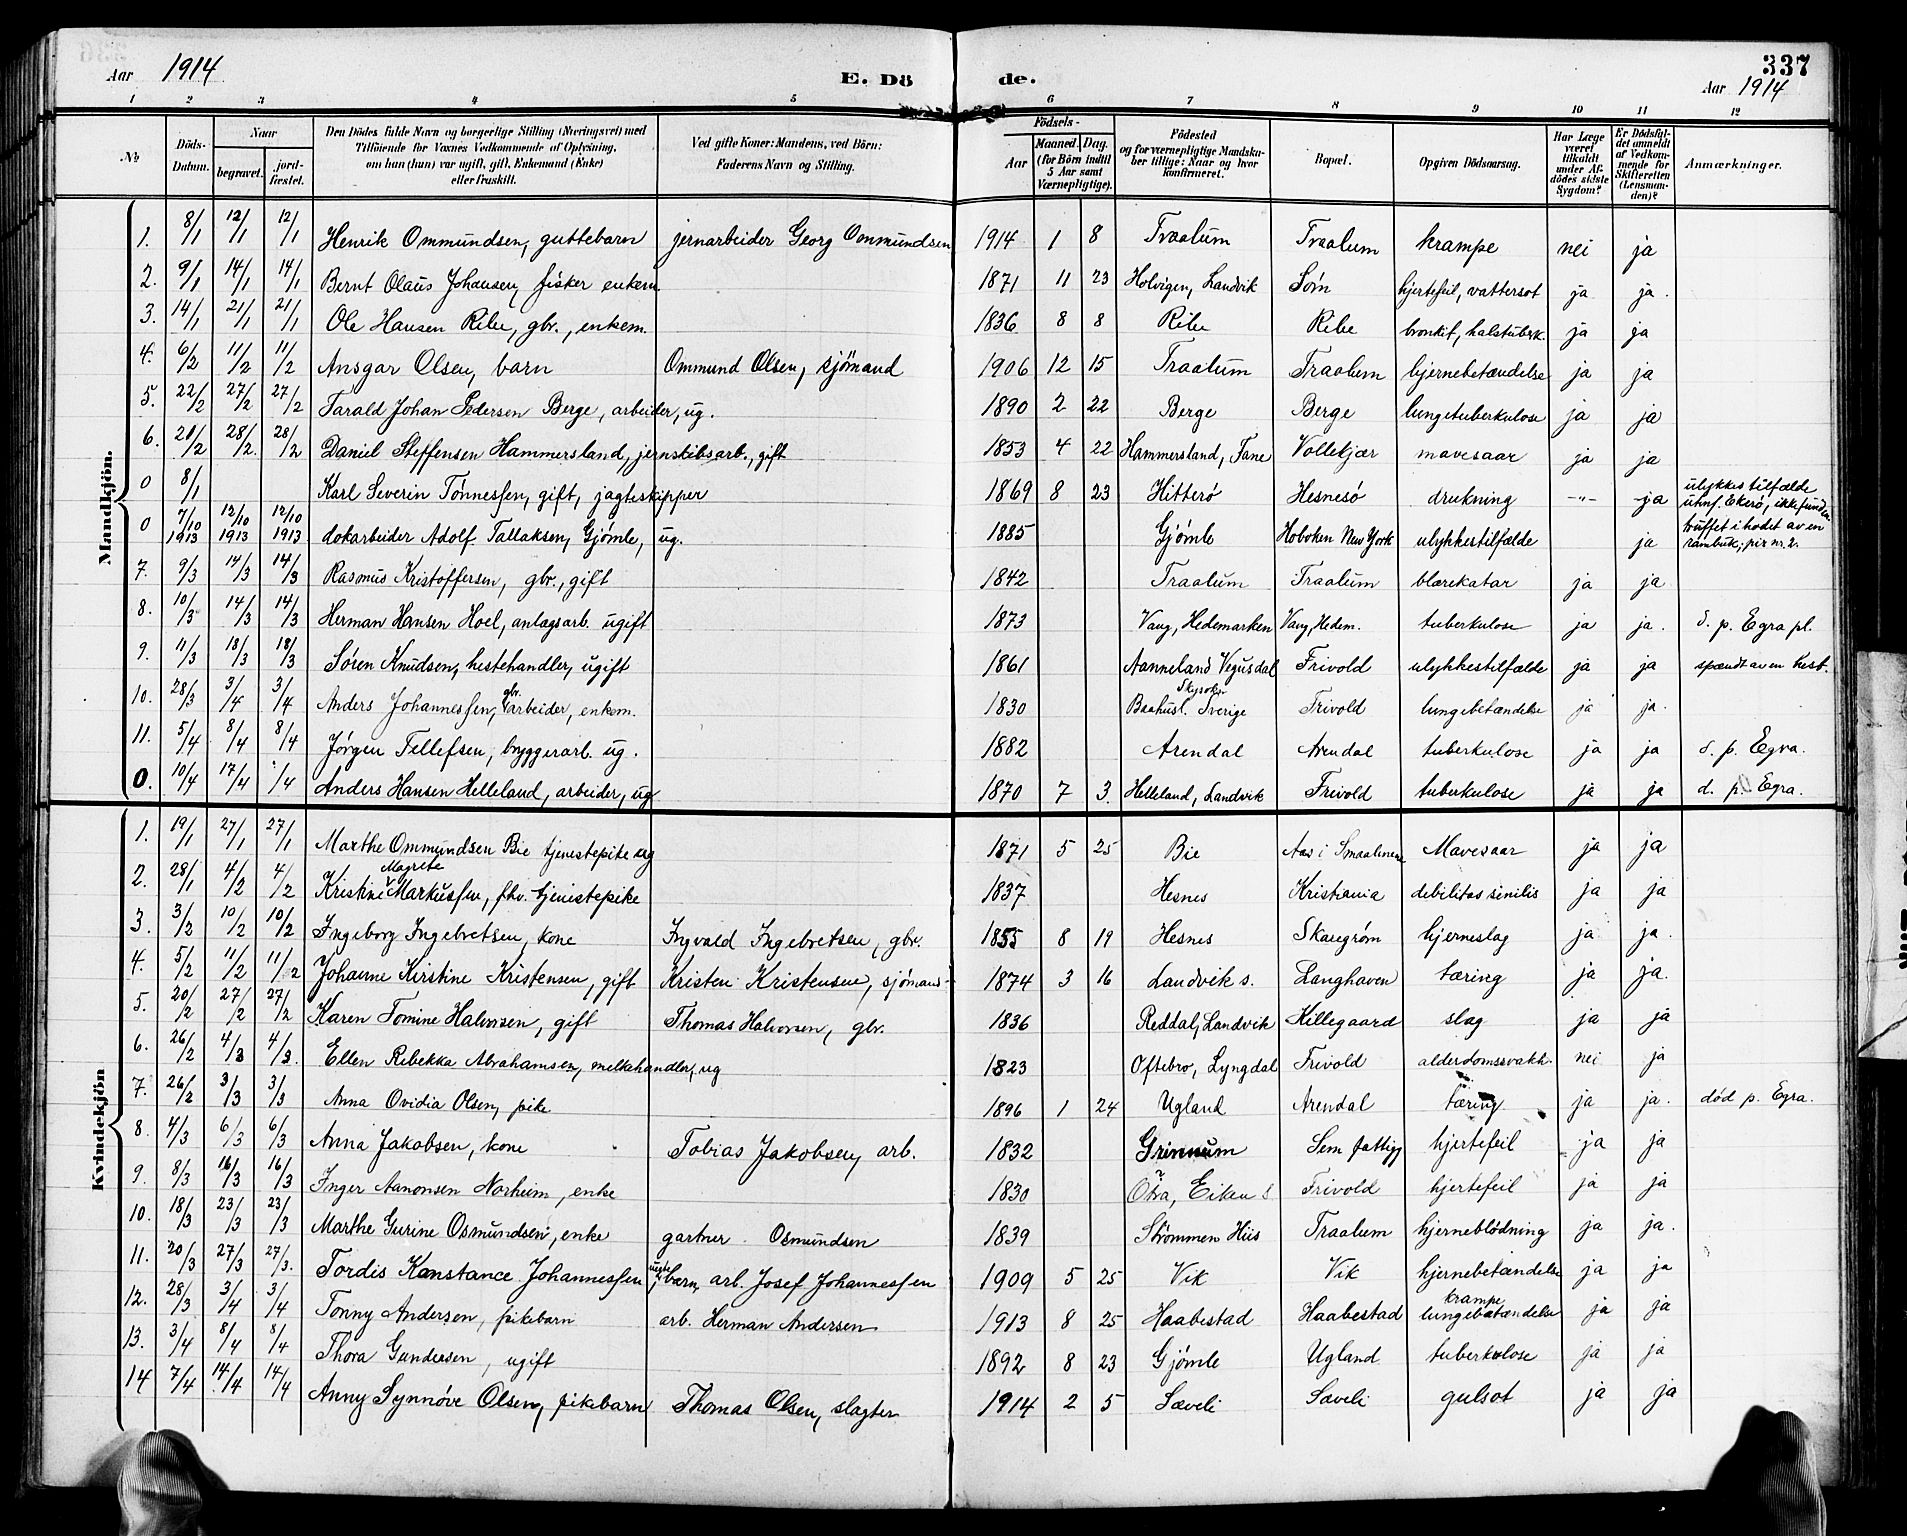 Aar 1914 E. Dö de. Aar 1914 337
1 2 3 4 5 6 7 8 9 10 11 12
№ Döds-Datum. Naar begravet. jord-fæstet. Den Dödes fulde Navn og borgerlige Stilling (Næringsvei) med Tilföiende for Voxnes Vedkommende af Oplysning, om han (hun) var ugift, gift, Enkemand (Enke) eller fraskilt. Ved gifte Koner: Mandens, ved Börn: Faderens Navn og Stilling. Födsels- Aar Maaned. Dag. (for Börn indtil 5 Aar samt Værnepligtige). Födested og for værnepligtige Mandskaber tillige: Naar og hvor konfirmeret. Bopæl. Opgiven Dödsaarsag. Har Læge været tilkaldt under Afdödes sidste Sygdom? Er Dödsfaldet anmeldt af Vedkommende for Skifteretten (Lensmanden)? Anmærkninger.
Mandkjön.
1. 8/1 12/1 12/1 Henrik Ommundsen, guttebarn jernarbeider Georg Ommundsen 1914 1 8 Traalum Traalum krampe nei ja
2. 9/1 14/1 14/1 Bernt Olaus Johansen, fisker enkem. 1871 11 23 Holvigen, Landvik Søm hjertefeil, vattersot ja ja.
3. 14/1 21/1 21/1 Ole Hansen Ribe, gbr., enkem. 1836 8 8 Ribe Ribe bronkit, halstuberk. ja ja
4. 6/2 11/2 11/2 Ansgar Olsen, barn Ommund Olsen, sjömand 1906 12 15 Traalum Traalum hjernebetændelse ja ja
5. 22/2 27/2 27/2 Tarald Johan Pedersen Berge, arbeider, ug. 1890 2 22 Berge Berge lungetuberkulose ja ja
6. 21/2 28/2. 28/2 Daniel Steffensen Hammersland, jernskibsarb., gift 1853 4 22 Hammersland, Fane Vollekjær mavesaar ja ja
0 8/1 Karl Severin Tønnessen, gift, jagteskipper 1869 8 23 Hitterö Hesnesö drukning -"- ja ulykkestilfælde utenf. Ekerö, ikke funden
0 7/10 1913 12/10 1913 12/10 1913 dokarbeider Adolf Tallaksen, Gjömle, ug. 1885 Gjömle Hoboken New York ulykkestilfælde ja truffet i hodet av en rambuk; pir nr. 2.
7. 9/3 14/3 14/3 Rasmus Kristoffersen, gbr., gift 1842 Traalum Traalum blærekatar ja ja
8. 10/3 14/3 14/3 Herman Hansen Hoel, anlægsarb. ugift 1873 Vang, Hedemarken Vang, Hedem. tuberkulose ja ja. d. p. Egra pl.
9. 11/3 18/3 18/3 Sören Knudsen, hestehandler, ugift 1861 Aanneland Vegusdal Frivold ulykkestilfælde ja ja spændt av en hest.
10. 28/3 3/4 3/4 Anders Johannessen, gbr. arbeider, enkem. 1830 Baahusl. Sverige Frivold lungebetændelse ja ja.
11. 5/4 8/4 8/4 Jörgen Tellefsen, bryggerarb. ug. 1882 Arendal Arendal tuberkulose ja ja d. p. Egra.
0. 10/4 17/4 /4 Anders Hansen Helleland, arbeider, ug 1870 7 3. Helleland, Landvik Frivold tuberkulose ja ja d. p. Egra.
Kvindekjön
1. 19/1 27/1 27/1 Marthe Ommundsen Bie tjenestepike ug 1871 5 25 Bie Aas i Smaalenene Mavesaar ja ja
2. 28/1 4/2 4/2 Kristine Magrete Markussen, fhv. tjenestepike 1837 Hesnes Kristiania debilitas senilis ja ja
3. 3/2 10/2 10/2 Ingeborg Ingebretsen, kone Ingvald Ingebretsen, gbr. 1855 8 19 Hesnes Skaregrøm hjerneslag ja ja.
4. 5/2 11/2 11/2 Johanne Kirstine Kristensen, gift Kristen Kristensen, sjømand 1874 3 16 Landvik s. Langhaven tæring ja ja.
5. 20/2 27/2 27/2 Karen Tomine Halvorsen, gift Thomas Halvorsen, gbr. 1836 Reddal, Landvik Killegaard slag ja ja
6. 26/2 4/3 4/3. Ellen Rebekka Abrahamsen, melkehandler, ug 1823 Oftebro, Lyngdal Frivold alderdomssvakh. nei ja
7. 26/2 3/3 3/3 Anna Ovidia Olsen, pike 1896 1 24 Ugland Arendal tæring ja ja. död p. Egra.
8. 4/3 6/3 6/3 Anna Jakobsen, kone Tobias Jakobsen, arb. 1832 Grinnum Sem fattigg hjertefeil ja ja
9. 8/3 16/3 16/3 Inger Aanonsen Norheim, enke 1830 Otra, Eiken s Frivold hjertefeil ja ja
10. 18/3 23/3 23/3 Marthe Gurine Osmundsen, enke gartner Osmundsen 1839 Strömmen Hiis Traalum hjerneblödning ja ja.
11. 20/3 27/3 27/3. Tordis Konstance Johannessen, barn, arb. Josef Johannessen 1909 5 25 Vik Vik hjernebetændelse ja ja
12. 28/3 3/4 3/4 Tonny Andersen, pikebarn arb. Herman Andersen 1913 8 25 Haabestad Haabestad krampe lungebetændelse ja ja
13. 3/4 8/4 8/4 Thora Gundersen, ugift 1892 8 23 Gjömle Ugland tuberkulose ja ja
14 7/4 14/4 14/4 Anny Synnöve Olsen, pikebarn Thomas Olsen, slagter 1914 2 5 Sæveli Sæveli gulsot ja ja